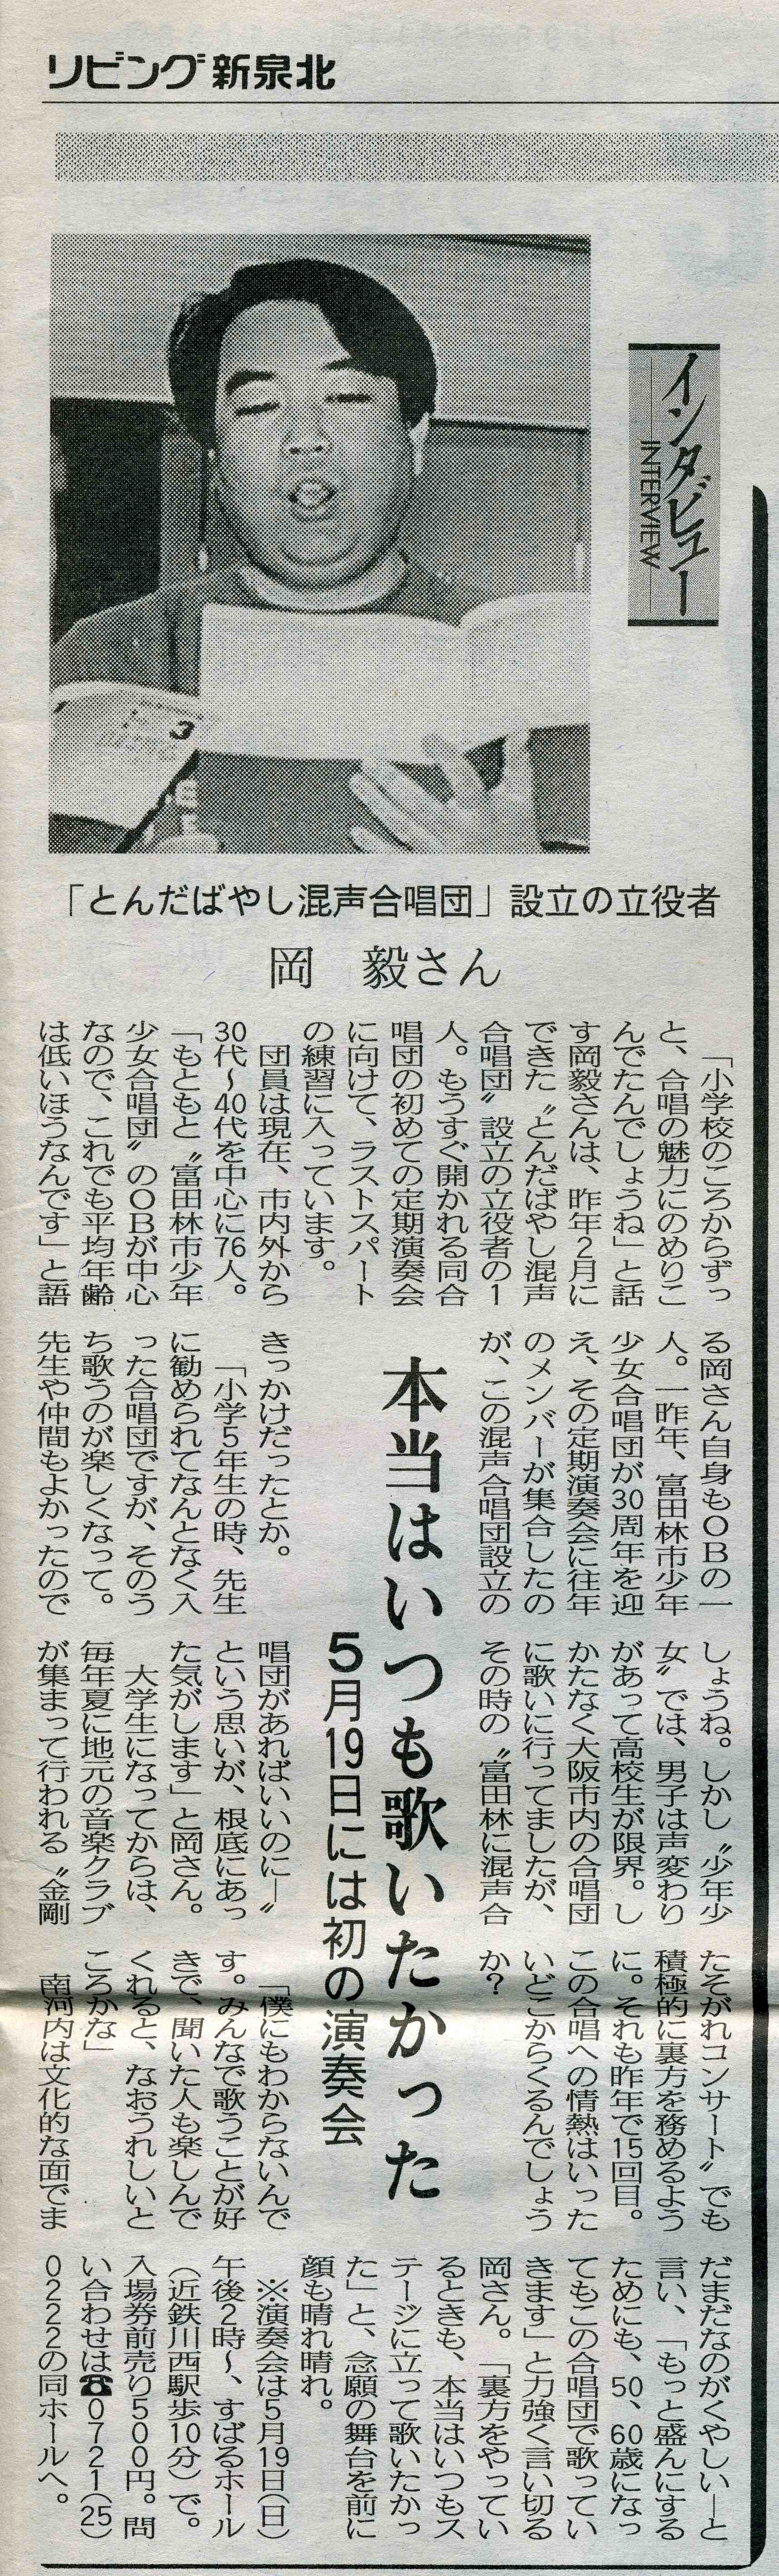 リビング新泉北
インタビュー
INTERVIEW
「とんだばやし混声合唱団」設立の立役者
岡　毅さん
本当はいつも歌いたかった
5月19日には初の演奏会
「小学校のころからずっ
と、合唱の魅力にのめりこ
んでたんでしょうね」と話
す岡毅さんは、昨年2月に
できた〝とんだばやし混声
合唱団〟設立の立役者の1
人。もうすぐ開かれる同合
唱団の初めての定期演奏会
に向けて、ラストスパート
の練習に入っています。
団員は現在、市内外から
30代〜40代を中心に76人。
「もともと〝富田林市少年
少女合唱団〟のOBが中心
なので、これでも平均年齢
は低いほうなんです」と語
る岡さん自身もOBの一
人。一昨年、富田林市少年
少女合唱団が30周年を迎
え、その定期演奏会に往年
のメンバーが集合したの
が、この混声合唱団設立の
きっかけだったとか。
「小学5年生の時、先生
に勧められてなんとなく入
った合唱団ですが、そのう
ち歌うのが楽しくなって。
先生や仲間もよかったので
しょうね。しかし〝少年少
女〟では、男子は声変わり
があって高校生が限界。し
かたなく大阪市内の合唱団
に歌いに行ってましたが、
その時の〝富田林に混声合
唱団があればいいのに―〟
という思いが、根底にあっ
た気がします」と岡さん。
大学生になってからは、
毎年夏に地元の音楽クラブ
が集まって行われる〝金剛
たそがれコンサート〟でも
積極的に裏方を務めるよう
に。それも昨年で15回目。
この合唱への情熱はいった
いどこからくるんでしょう
か？
「僕にもわからないんで
す。みんなで歌うことが好
きで、聞いた人も楽しんで
くれると、なおうれしいと
ころかな」
南河内は文化的な面でま
だまだなのがくやしい―と
言い、「もっと盛んにする
ためにも、50、60歳になっ
てもこの合唱団で歌ってい
きます」と力強く言い切る
岡さん。「裏方をやってい
るときも、本当はいつもス
テージに立って歌いたかっ
た」と、念願の舞台を前に
顔も晴れ晴れ。
※演奏会は5月19日(日)
午後2時〜、すばるホール
(近鉄川西駅歩10分)で。
入場券前売り500円。問
い合わせは☎0721(25)
0222の同ホールへ。